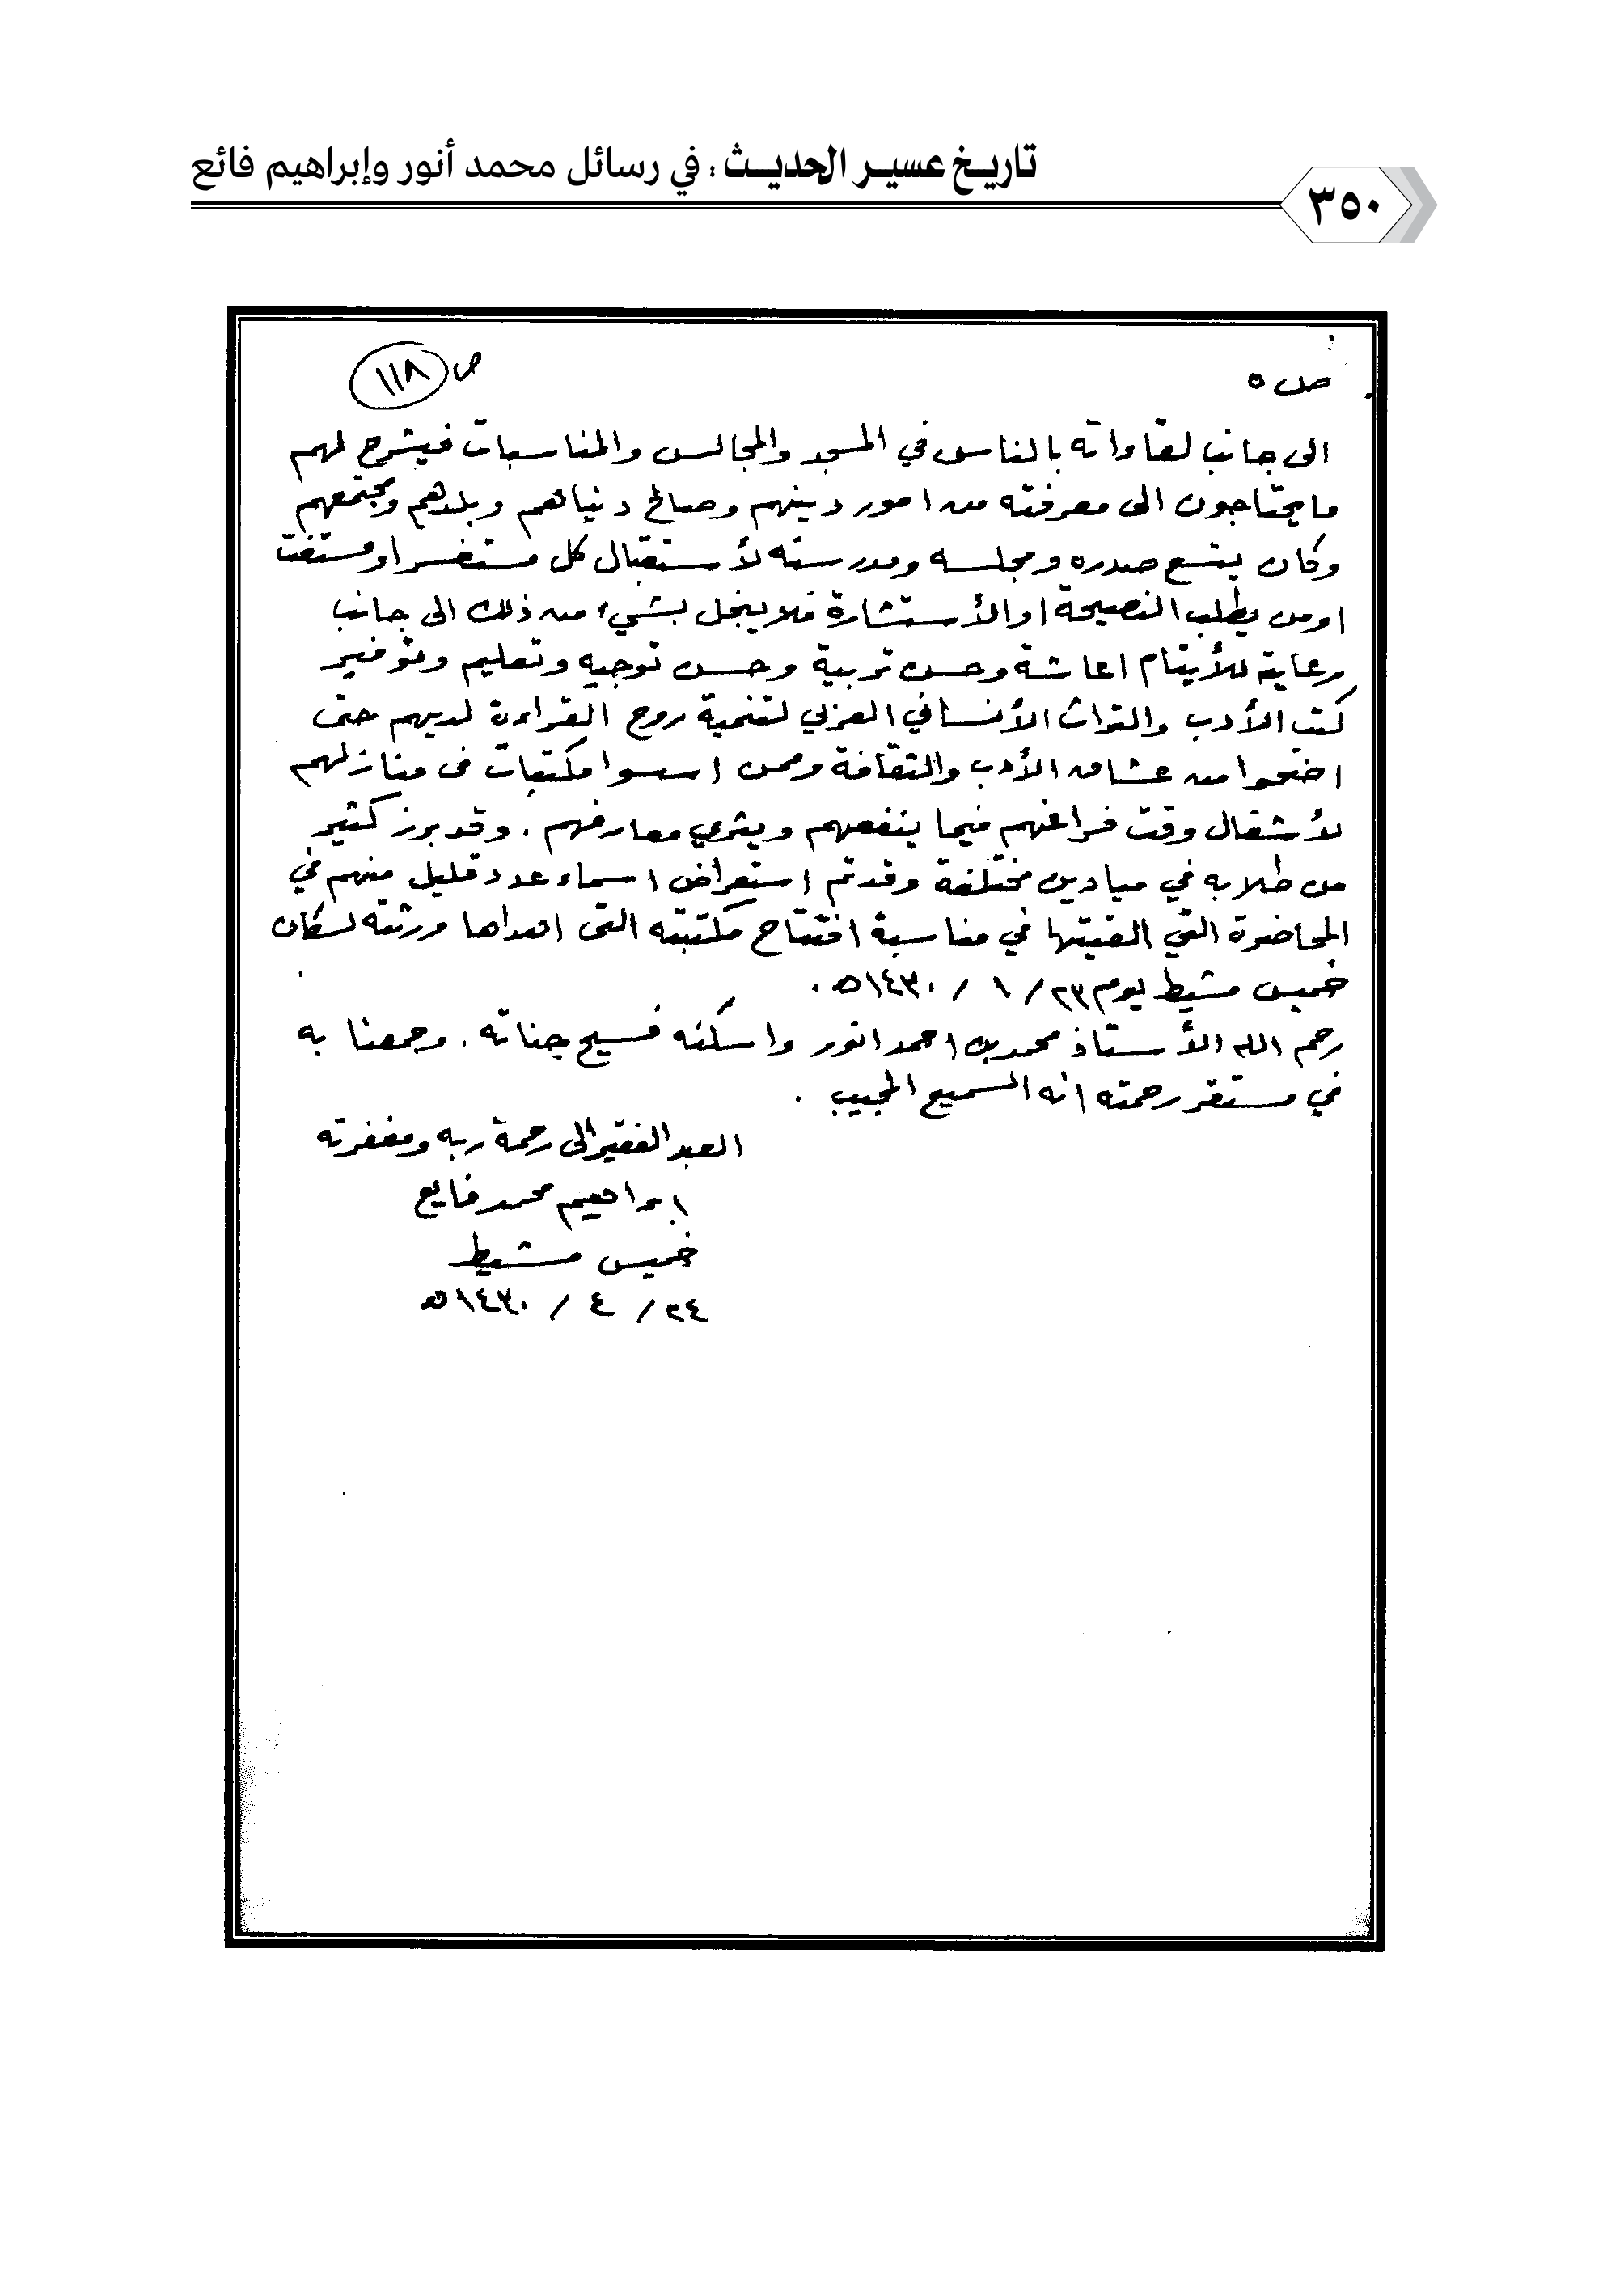 تاريخ عسير الحديث : في رسائل محمد أنور وإبراهيم فائع
٣٥٠
ص ٥
ص ١١٨
الى جانب لقاءاته بالناس في المسجد والمجالس والمناسبات فيشرح لهم
ما يحتاجون الى معرفته من امور دينهم وصالح دنياهم وبلدهم ومجتمعهم
وكان يتسع صدره ومجلسه ومدرسته لأستقبال كل مستفسر او مستفت
او من يطلب النصيحة او الأستشارة فلا يبخل بشيء من ذلك الى جانب
رعاية للأيتام اعاشة وحسن تربية وحسن توجيه وتعليم وتوفير
كتب الأدب والتراث الأنساني العربي لتنمية روح القراءة لديهم حتى
اضحوا من عشاق الأدب والثقافة وممن اسسوا مكتبات في منازلهم
لأشغال وقت فراغهم فيما ينفعهم ويثري معارفهم . وقد برز كثير
من طلابه في ميادين مختلفة وقد تم استعراض اسماء عدد قليل منهم في
المحاضرة التي القيتها في مناسبة افتتاح مكتبته التى اهداها ورثته لسكان
خميس مشيط يوم ٢٣ / ١ / ١٤٣٠هـ .
رحم الله الأستاذ محمد بن احمد انور واسكنه فسيح جناته . وجمعنا به
في مستقر رحمته انه السميع المجيب .
العبد الفقير الى رحمة ربه ومغفرته
ابراهيم محمد فايع
خميس مشيط
٢٤ / ٤ / ١٤٣٠هـ